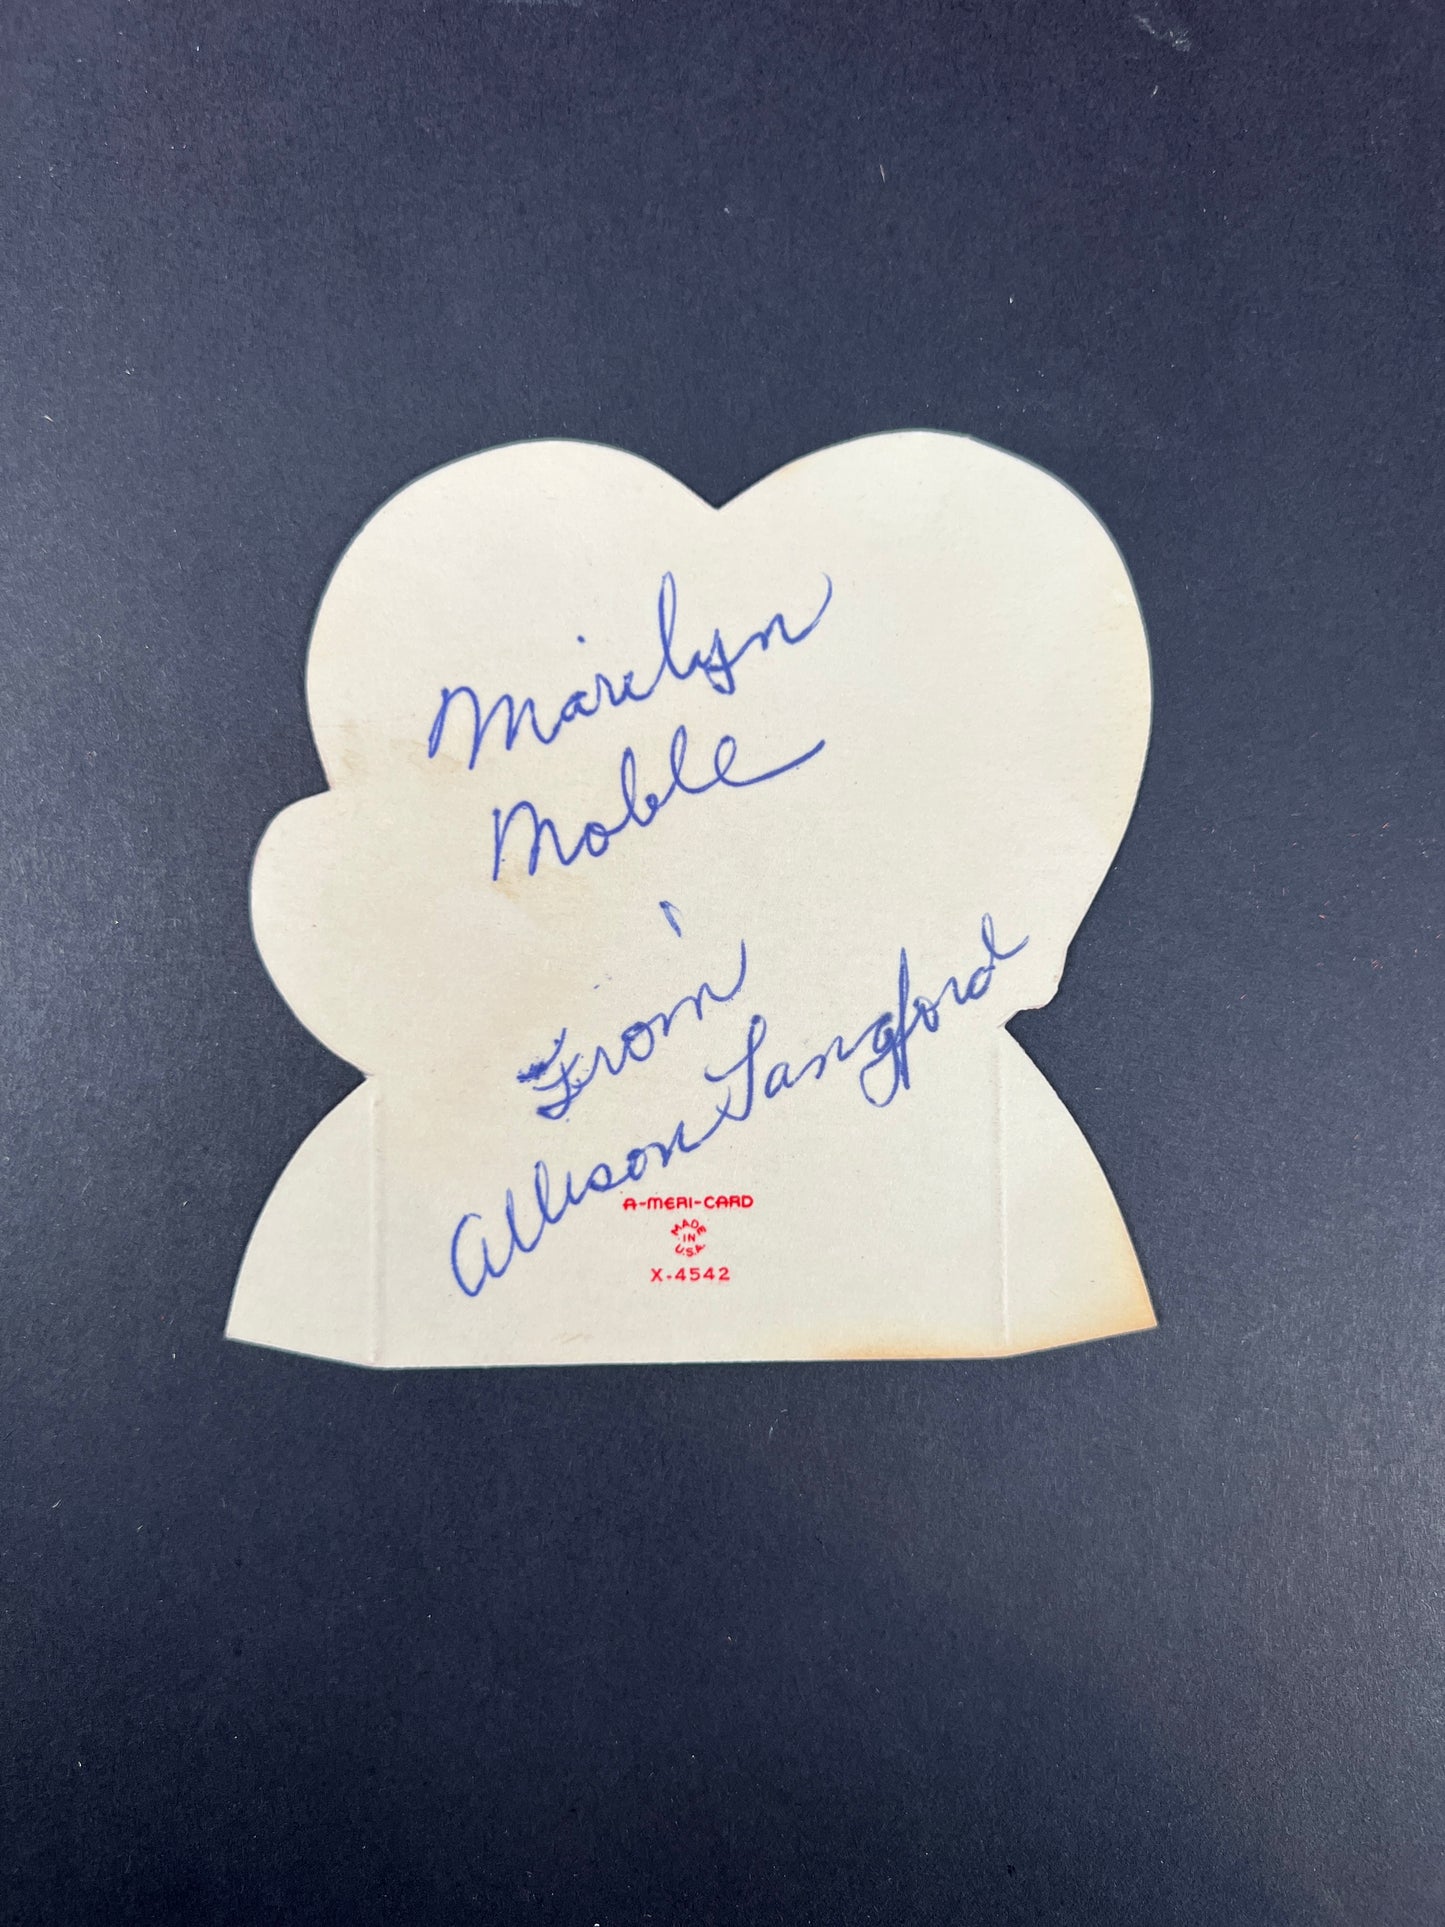 Marilyn
Noble
From
Allison Langford
A-MERI-CARD
MADE
IN
U.S.A.
X-4542